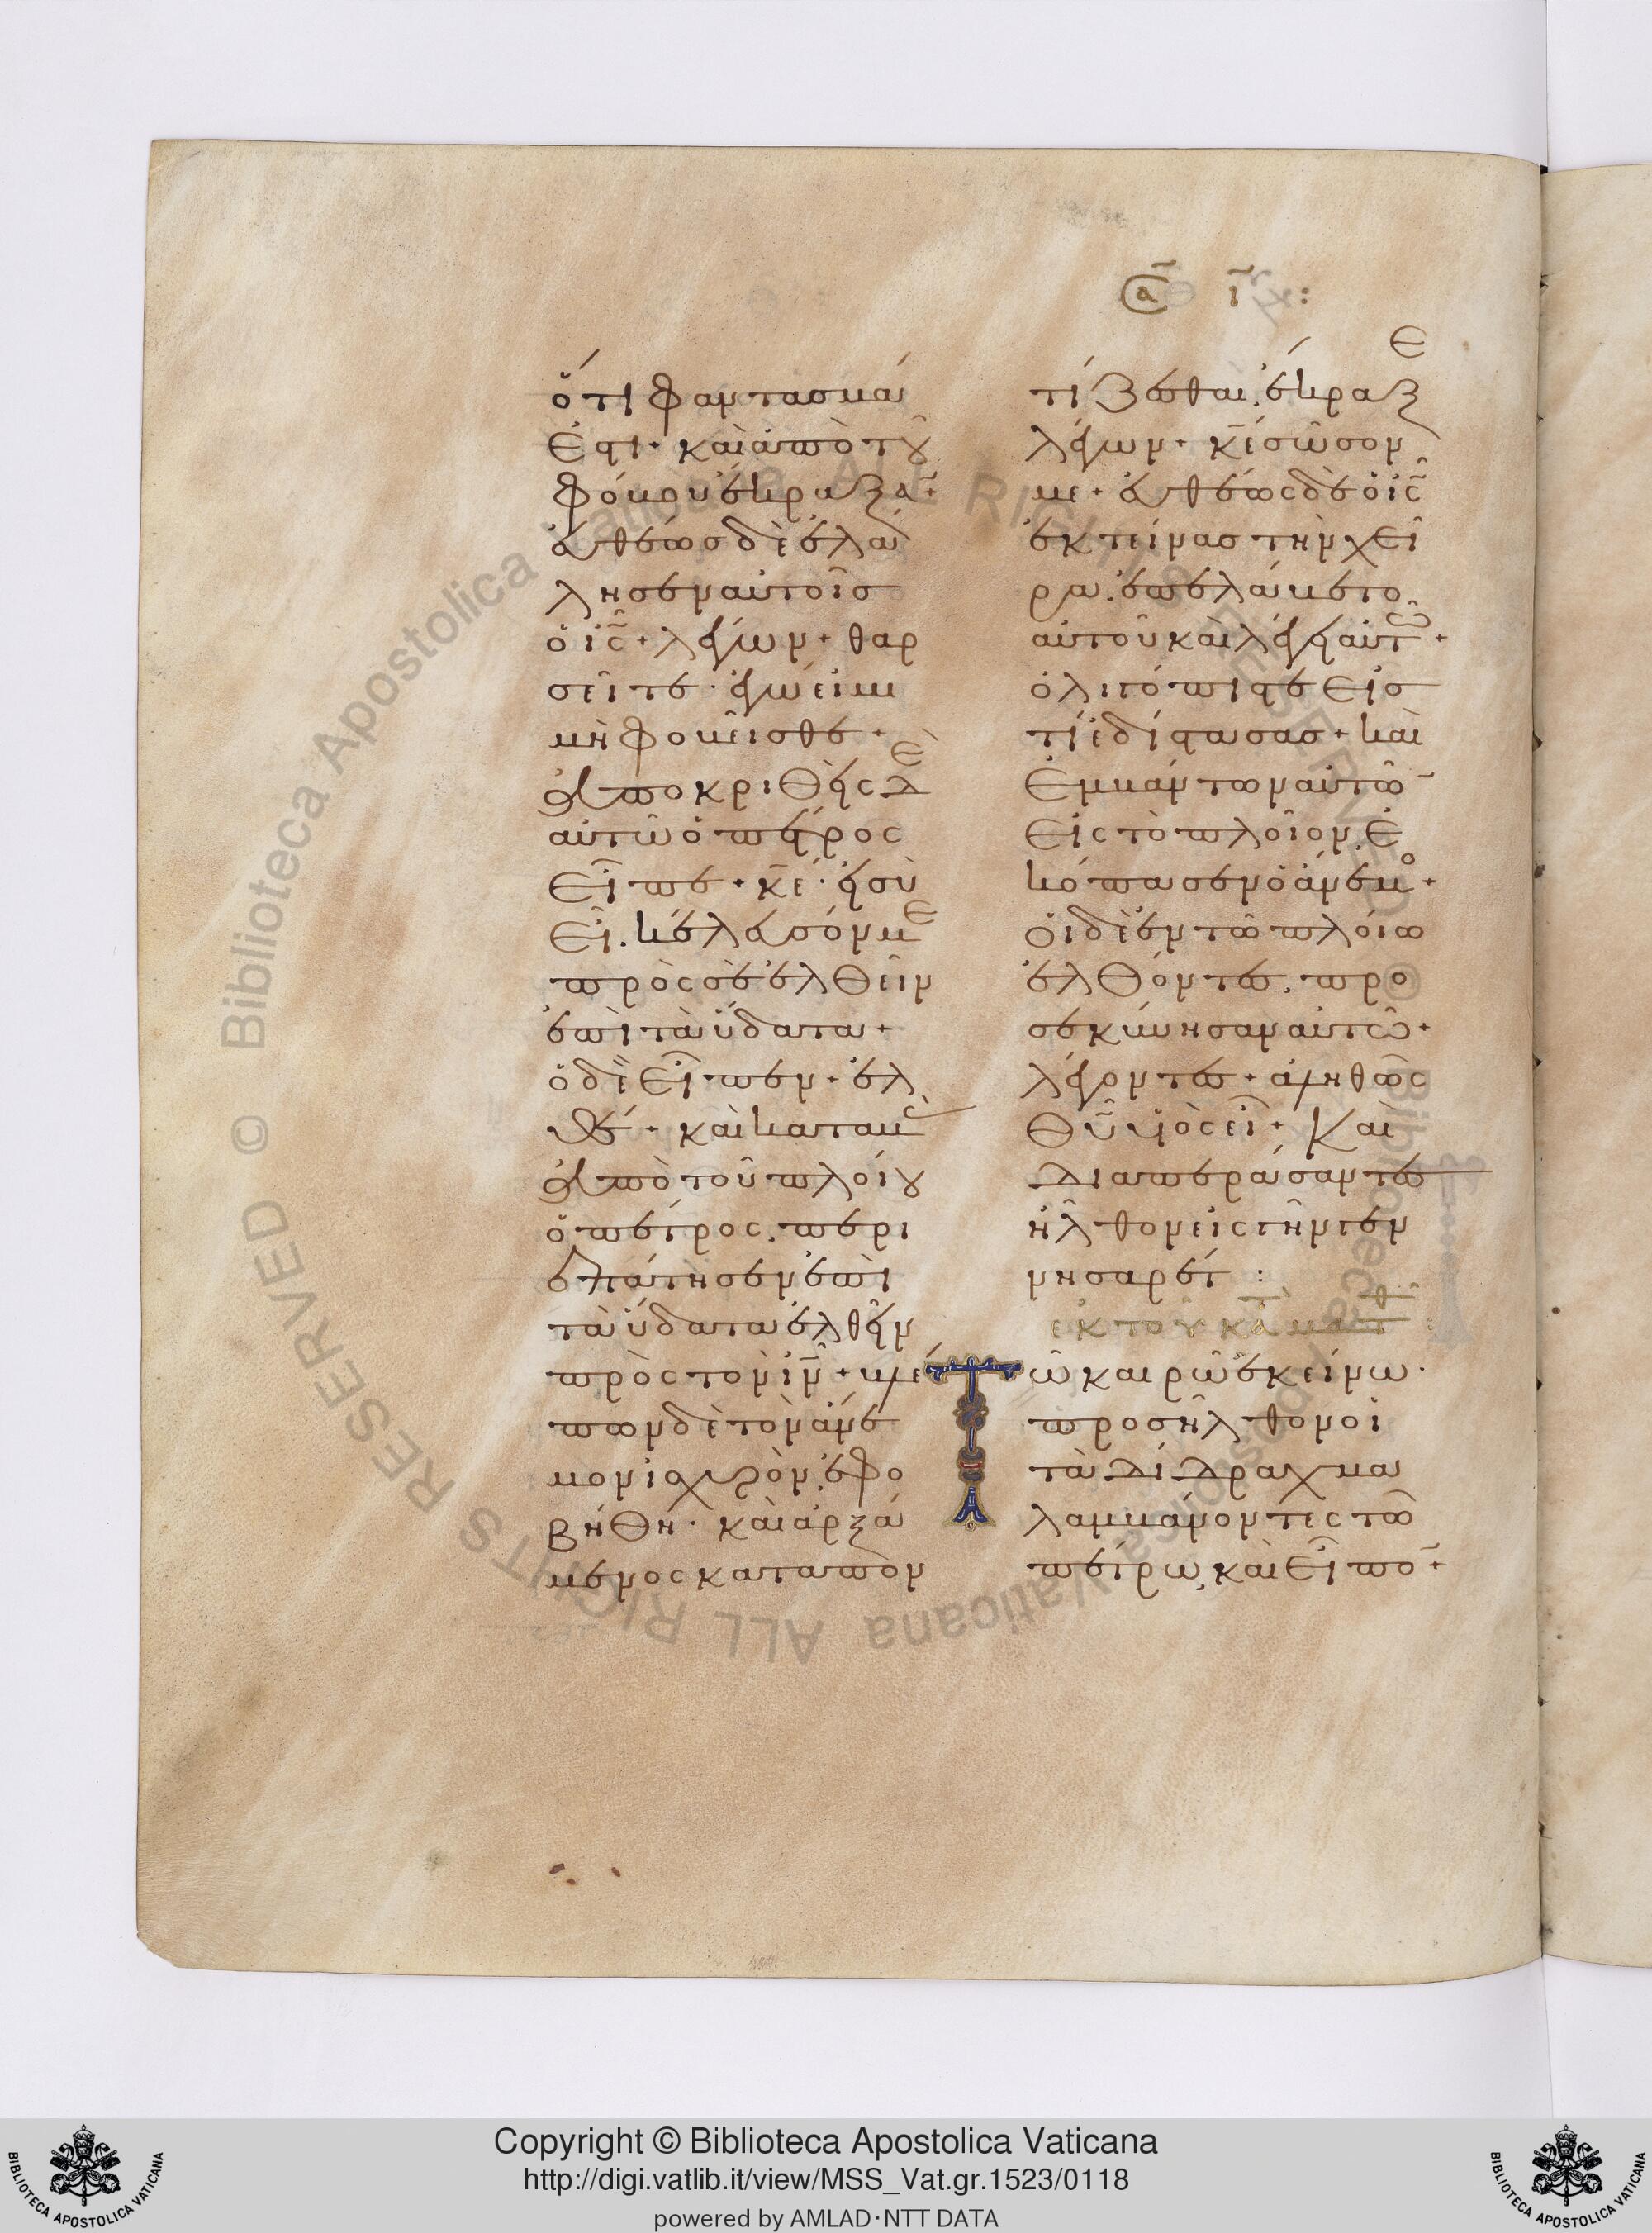 ὅτι φαντασμά
ἐστι· καὶ ἀπὸ τοῦ
φόβου ἔκραξαν·
εὐθέως δὲ ἐλά
λησεν αὐτοῖς
ὁ ις· λέγων· θαρ
σεῖτε· ἐγώ εἰμι
μὴ φοβεῖσθε·
ἀποκριθεὶς δὲ
αὐτῶ ὁ πέτρος
εἶπε· κε· εἰ σὺ
εἶ. κέλευσόν με
πρὸς σὲ ἐλθεῖν
ἐπὶ τὰ ὕδατα·
ὁ δὲ εἶπεν· ἐλ
θέ· καὶ καταβὰς
ἀπὸ τοῦ πλοίου
ὁ πέτρος. περι
επάτησεν ἐπὶ
τὰ ὕδατα ἐλθεῖν
πρὸς τὸν ιν· βλέ
πων δὲ τὸν ἄνε
μον ἰσχυρὸν. ἐφο
βήθη· καὶ ἀρξά
μενος καταπον
α ι:
τίζεσθαι. ἔκραξε
λέγων· κε σῶσον
με· εὐθέως δὲ ὁ ις
ἐκτείνας τὴν χεῖ
ρα. ἐπελάβετο
αὐτοῦ καὶ λέγει αὐτῶ·
ὀλιγόπιστε εἰς
τί ἐδίστασας· καὶ
ἐμβάντων αὐτῶν
εἰς τὸ πλοῖον. ἐ
κόπασεν ὁ ἄνεμος·
οἱ δὲ ἐν τῶ πλοίω
ἐλθόντες. προ
σεκύνησαν αὐτῶ·
λέγοντες· ἀληθῶς
θυ υἱὸς εἶ· Καὶ
διαπεράσαντες
ἦλθον εἰς τὴν γεν
νησαρέτ:
ἐκ τοῦ κατὰ ματθ:
Τῶ καιρῶ ἐκείνω·
προσῆλθον οἱ
τὰ δίδραχμα
λαμβάνοντες τῶ
πέτρω, καὶ εἶπον·
Copyright © Biblioteca Apostolica Vaticana
http://digi.vatlib.it/view/MSS_Vat.gr.1523/0118
powered by AMLAD·NTT DATA
BIBLIOTECA APOSTOLICA VATICANA
BIBLIOTECA APOSTOLICA VATICANA
© Biblioteca Apostolica Vaticana ALL RIGHTS RESERVED © Biblioteca Apostolica Vaticana ALL RIGHTS RESERVED